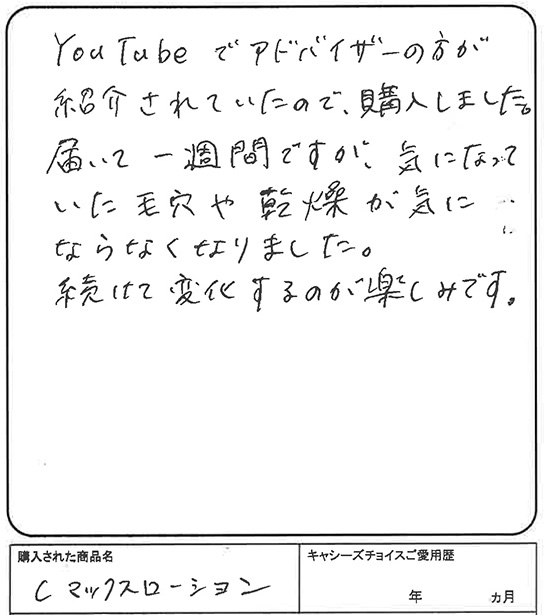 YouTubeでアドバイザーの方が
紹介されていたので、購入しました。
届いて一週間ですが、気になって
いた毛穴や乾燥が気に
ならなくなりました。
続けて変化するのが楽しみです。
購入された商品名
キャシーズチョイスご愛用歴
Cマックスローション
年 ヵ月